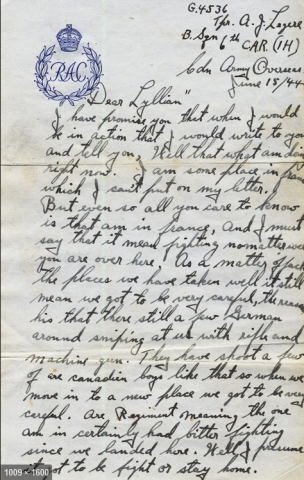 G.4536
Tpr. A. J. Lozere
B. Sqn 6th CAR (1H)
Cdn Army Overseas
June 18/44
RAC
"Dear Lyllian"
I have promise you that when I would
be in action that I would write to you
and tell you, Well that what am doing
right now. I am some place in france
which I can't put on my letter.
But even so all you care to know
is that am in france, And I must
say that it mean fighting no matter were
you are over here. As a matter of fact
the places we have taken well it still
mean we got to be very careful, the reason
his that there still a few German
around sniping at us with rifle and
machine gun. They have shoot a few
of are canadien boys like that so when we
move in to a new place we got to be very
careful. Are Regiment meaning the one
am in certainly had bitter fighting
since we landed here. Well I presume
it got to be fight or stay home.
1009 × 1600